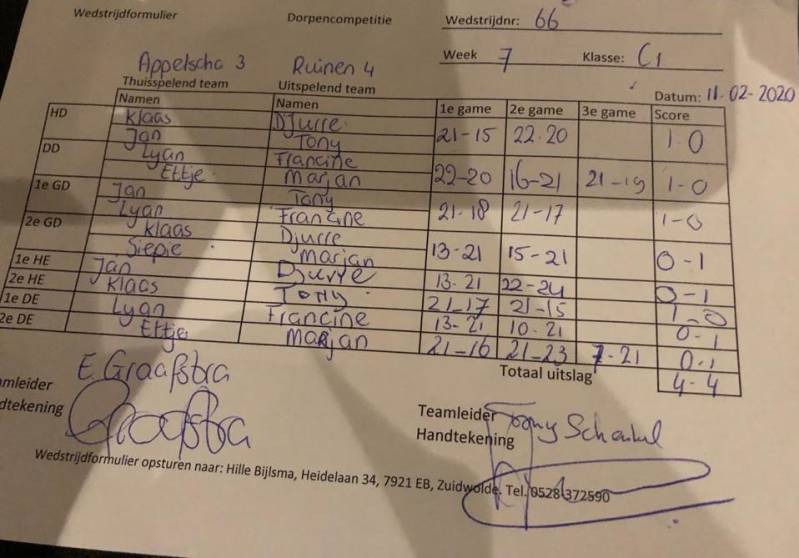 Wedstrijdformulier Dorpencompetitie Wedstrijdnr: 66
Week 7 Klasse: C1
Appelscha 3 Ruinen 4
Thuisspelend team Uitspelend team Datum: 11-02-2020
Namen Namen 1e game 2e game 3e game Score
HD Klaas Djurre
Jan Tony 21-15 22-20 1-0
DD Lyan Francine
Ettje Marjan 22-20 16-21 21-19 1-0
1e GD Jan Tony
Lyan Francine 21-18 21-17 1-0
2e GD Klaas Djurre
Siepie Marjan 13-21 15-21 0-1
1e HE Jan Djurre 13-21 22-24 0-1
2e HE Klaas Tony 21-17 21-15 1-0
1e DE Lyan Francine 13-21 10-21 0-1
2e DE Ettje Marjan 21-16 21-23 7-21 0-1
Totaal uitslag 4-4
E. Graafstra
amleider
dtekening Graafstra
Teamleider Tony
Handtekening
Wedstrijdformulier opsturen naar: Hille Bijlsma, Heidelaan 34, 7921 EB, Zuidwolde. Tel. 0528 372590